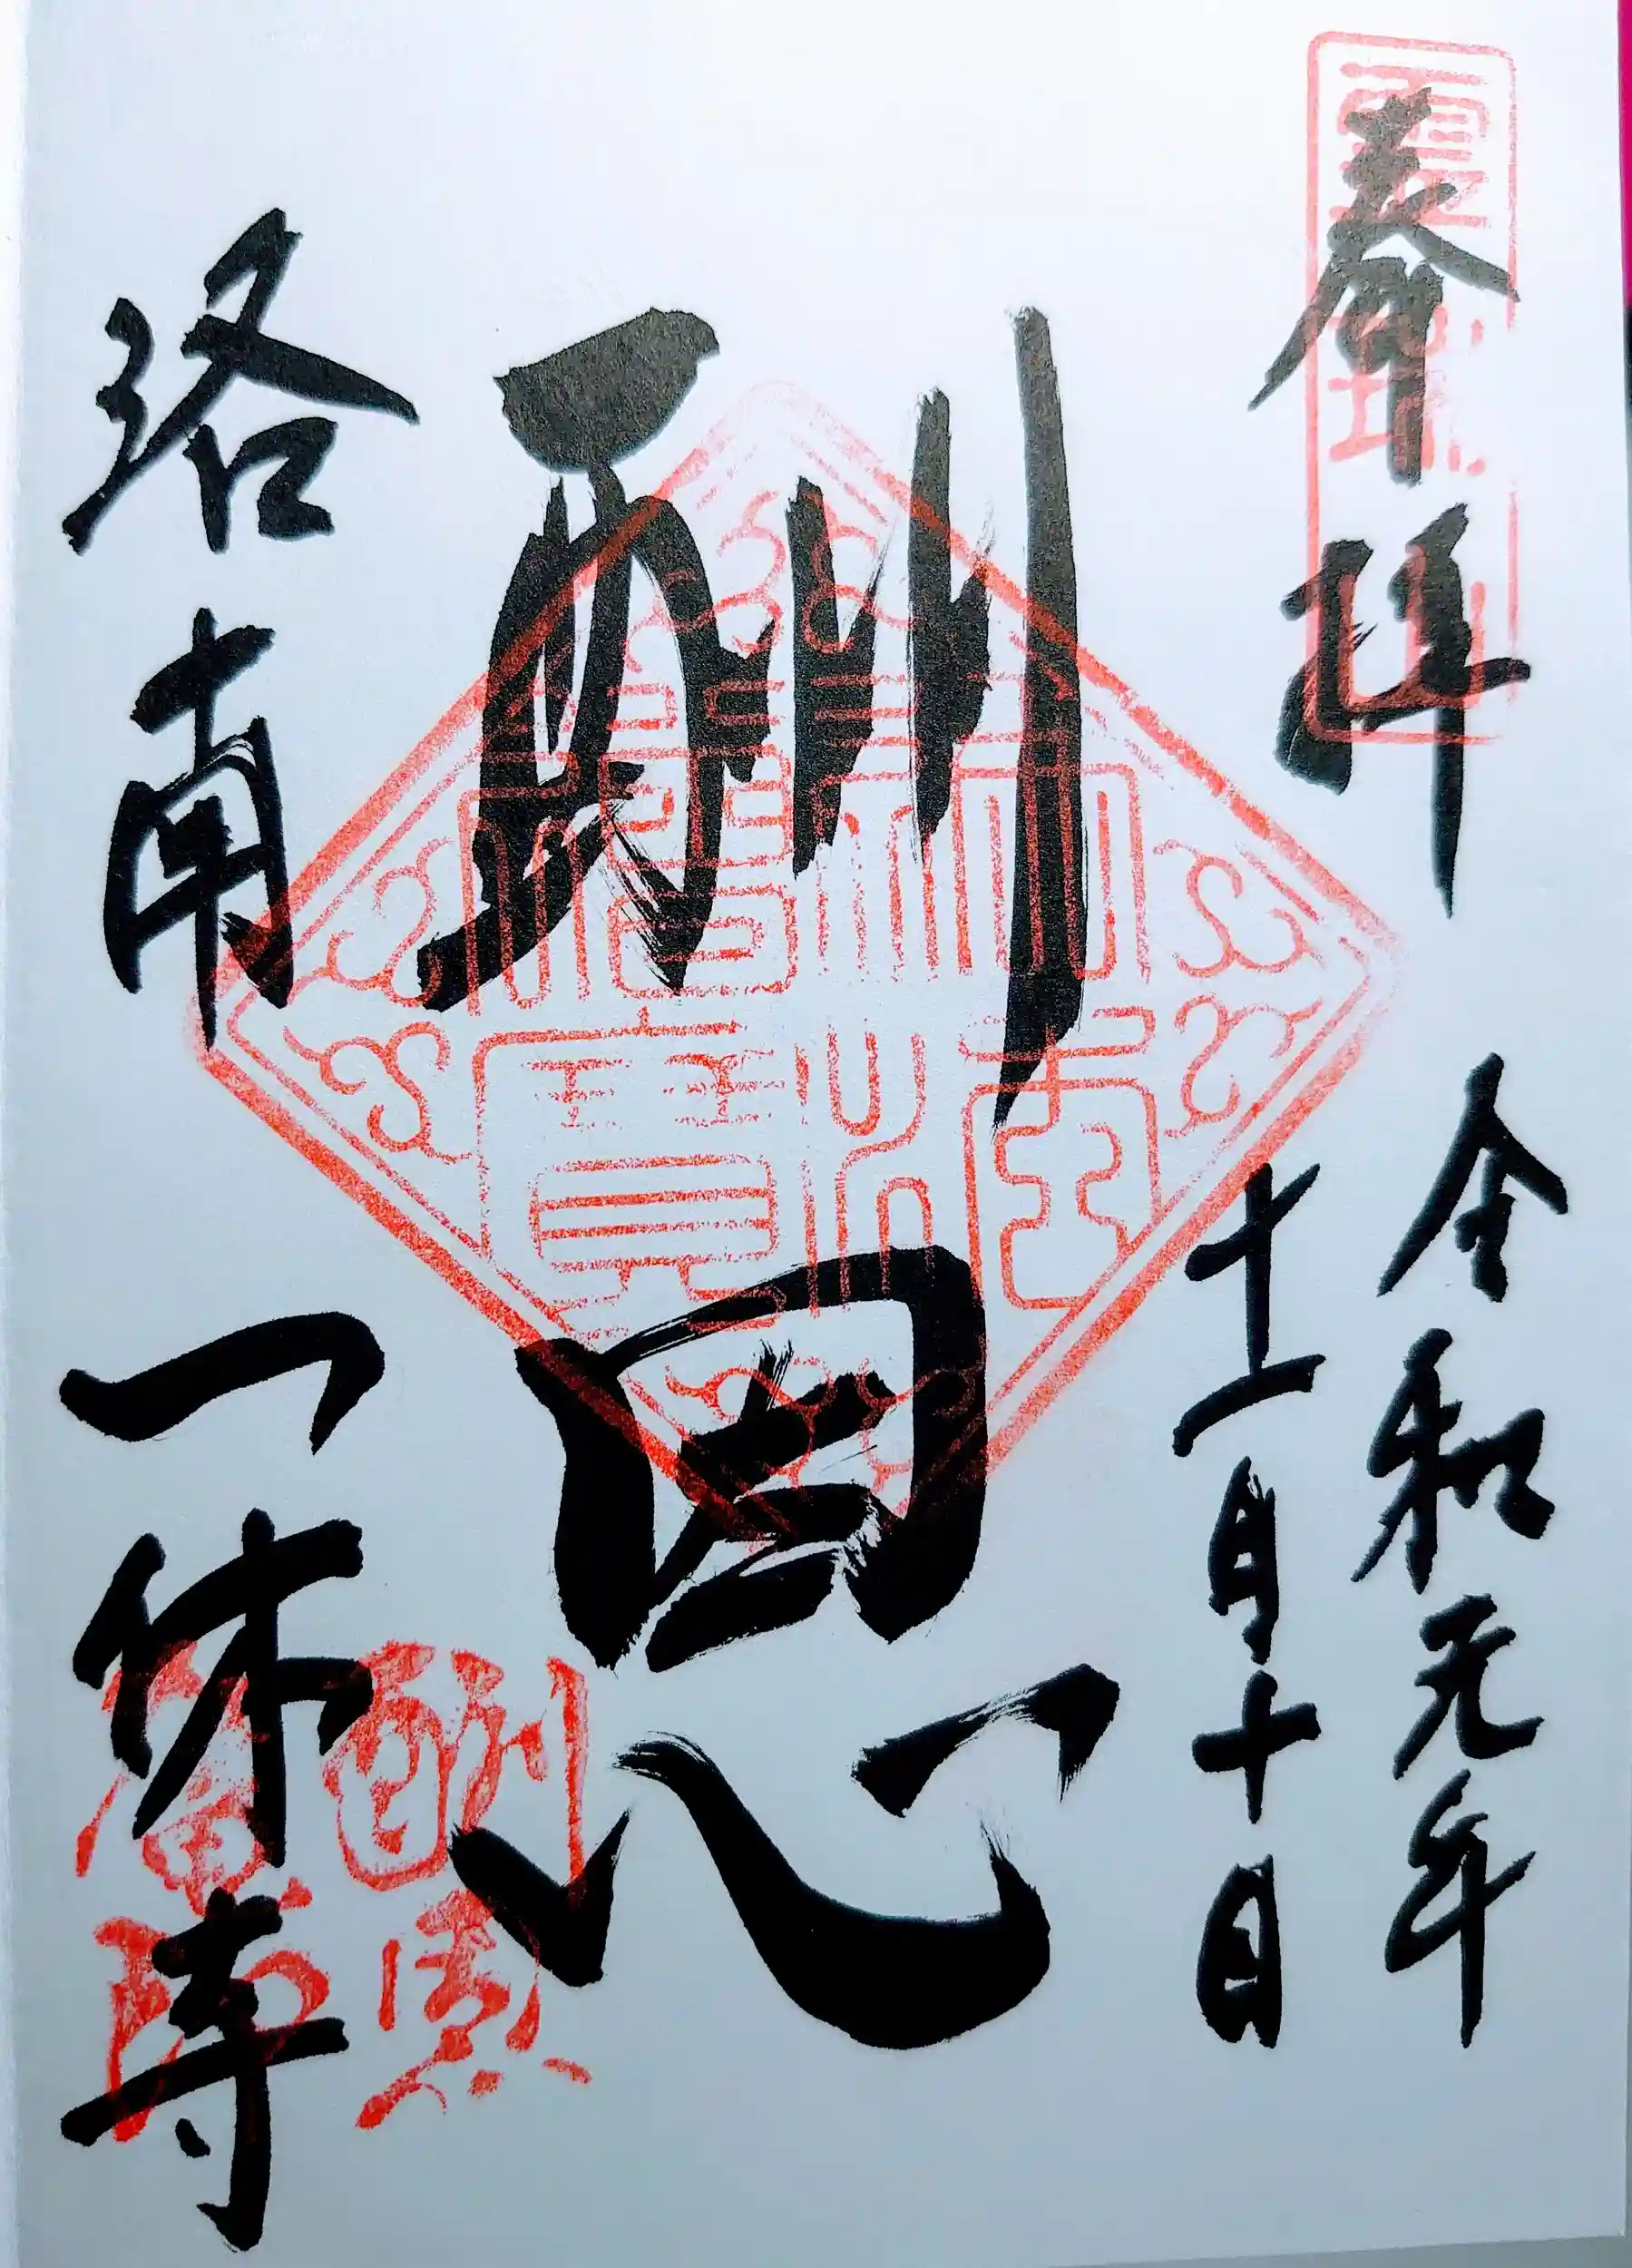 奉拝
令和元年
十一月十日
酬恩
洛南 一休寺
酬恩
庵印